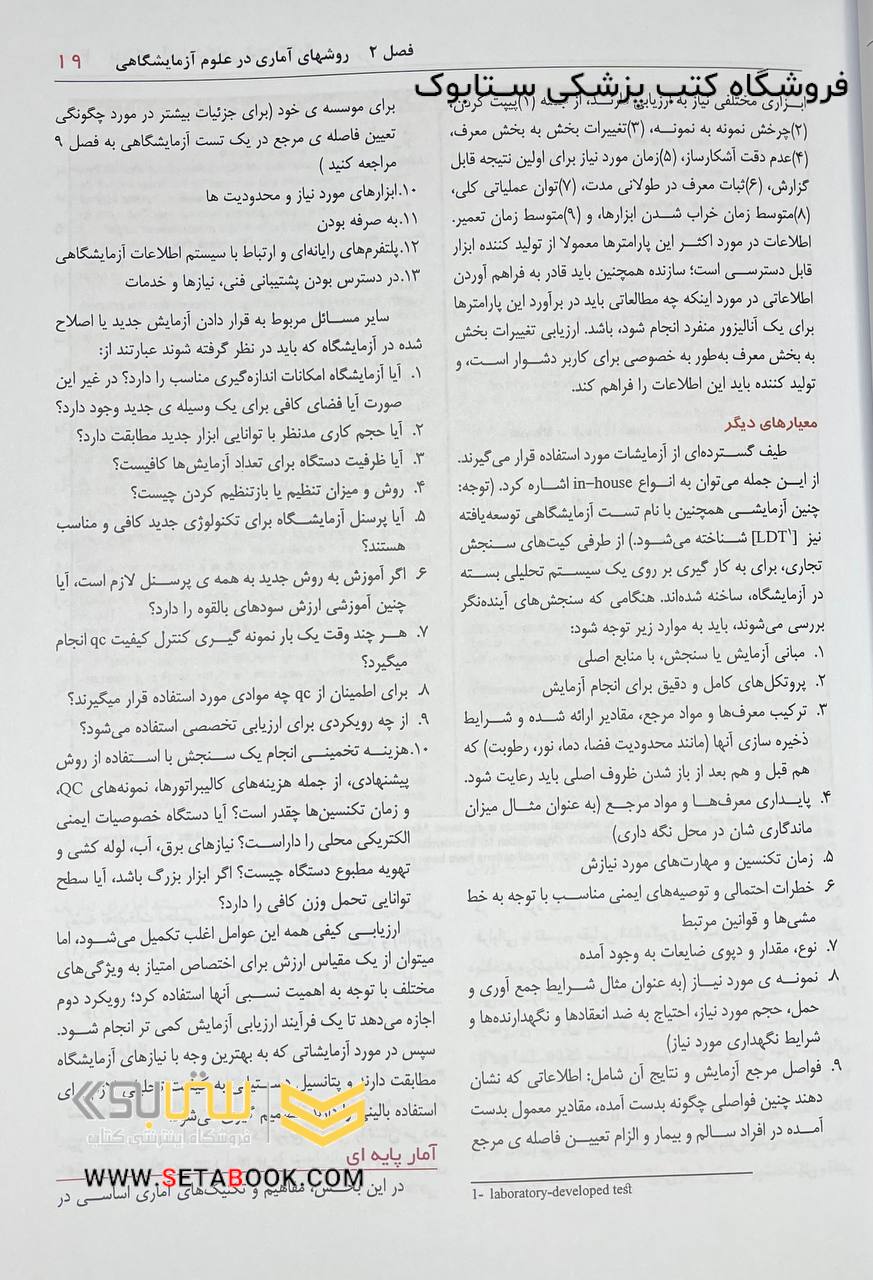 فصل ۲ روشهای آماری در علوم آزمایشگاهی ۱۹
فروشگاه کتب پزشکی ستابوک
ابزاری مختلفی نیاز به ارزیابی دارند، از جمله (۱)پیپت کردن،
(۲)چرخش نمونه به نمونه، (۳)تغییرات بخش به بخش معرف،
(۴)عدم دقت آشکارساز، (۵)زمان مورد نیاز برای اولین نتیجه قابل
گزارش، (۶)ثبات معرف در طولانی مدت، (۷)توان عملیاتی کلی،
(۸)متوسط زمان خراب شدن ابزارها، و (۹)متوسط زمان تعمیر.
اطلاعات در مورد اکثر این پارامترها معمولا از تولید کننده ابزار
قابل دسترسی است؛ سازنده همچنین باید قادر به فراهم آوردن
اطلاعاتی در مورد اینکه چه مطالعاتی باید در برآورد این پارامترها
برای یک آنالیزور منفرد انجام شود، باشد. ارزیابی تغییرات بخش
به بخش معرف به‌طور به خصوصی برای کاربر دشوار است، و
تولید کننده باید این اطلاعات را فراهم کند.
معیارهای دیگر
طیف گسترده‌ای از آزمایشات مورد استفاده قرار می‌گیرند.
از این جمله می‌توان به انواع in-house اشاره کرد. (توجه:
چنین آزمایشی همچنین با نام تست آزمایشگاهی توسعه‌یافته
نیز [LDT۱] شناخته می‌شود.) از طرفی کیت‌های سنجش
تجاری، برای به کار گیری بر روی یک سیستم تحلیلی بسته
در آزمایشگاه، ساخته شده‌اند. هنگامی که سنجش‌های آینده‌نگر
بررسی می‌شوند، باید به موارد زیر توجه شود:
۱. مبانی آزمایش یا سنجش، با منابع اصلی
۲. پروتکل‌های کامل و دقیق برای انجام آزمایش
۳. ترکیب معرف‌ها و مواد مرجع، مقادیر ارائه شده و شرایط
ذخیره سازی آنها (مانند محدودیت فضا، دما، نور، رطوبت) که
هم قبل و هم بعد از باز شدن ظروف اصلی باید رعایت شود.
۴. پایداری معرف‌ها و مواد مرجع (به عنوان مثال میزان
ماندگاری شان در محل نگه داری)
۵. زمان تکنسین و مهارت‌های مورد نیازش
۶. خطرات احتمالی و توصیه‌های ایمنی مناسب با توجه به خط
مشی‌ها و قوانین مرتبط
۷. نوع، مقدار و دپوی ضایعات به وجود آمده
۸. نمونه ی مورد نیاز (به عنوان مثال شرایط جمع آوری و
حمل، حجم مورد نیاز، احتیاج به ضد انعقادها و نگهدارنده‌ها و
شرایط نگهداری مورد نیاز)
۹. فواصل مرجع آزمایش و نتایج آن شامل: اطلاعاتی که نشان
دهند چنین فواصلی چگونه بدست آمده، مقادیر معمول بدست
آمده در افراد سالم و بیمار و الزام تعیین فاصله ی مرجع
1- laboratory-developed test
برای موسسه ی خود (برای جزئیات بیشتر در مورد چگونگی
تعیین فاصله ی مرجع در یک تست آزمایشگاهی به فصل ۹
مراجعه کنید )
۱۰.ابزارهای مورد نیاز و محدودیت ها
۱۱.به صرفه بودن
۱۲.پلتفرم‌های رایانه‌ای و ارتباط با سیستم اطلاعات آزمایشگاهی
۱۳.در دسترس بودن پشتیبانی فنی، نیازها و خدمات
سایر مسائل مربوط به قرار دادن آزمایش جدید یا اصلاح
شده در آزمایشگاه که باید در نظر گرفته شوند عبارتند از:
۱. آیا آزمایشگاه امکانات اندازه‌گیری مناسب را دارد؟ در غیر این
صورت آیا فضای کافی برای یک وسیله ی جدید وجود دارد؟
۲. آیا حجم کاری مدنظر با توانایی ابزار جدید مطابقت دارد؟
۳. آیا ظرفیت دستگاه برای تعداد آزمایش‌ها کافیست؟
۴. روش و میزان تنظیم یا بازتنظیم کردن چیست؟
۵. آیا پرسنل آزمایشگاه برای تکنولوژی جدید کافی و مناسب
هستند؟
۶. اگر آموزش به روش جدید به همه ی پرسنل لازم است، آیا
چنین آموزشی ارزش سودهای بالقوه را دارد؟
۷. هر چند وقت یک بار نمونه گیری کنترل کیفیت qc انجام
میگیرد؟
۸. برای اطمینان از qc چه موادی مورد استفاده قرار میگیرند؟
۹. از چه رویکردی برای ارزیابی تخصصی استفاده می‌شود؟
۱۰.هزینه تخمینی انجام یک سنجش با استفاده از روش
پیشنهادی، از جمله هزینه‌های کالیبراتورها، نمونه‌های QC،
و زمان تکنسین‌ها چقدر است؟ آیا دستگاه خصوصیات ایمنی
الکتریکی محلی را داراست؟ نیازهای برق، آب، لوله کشی و
تهویه مطبوع دستگاه چیست؟ اگر ابزار بزرگ باشد، آیا سطح
توانایی تحمل وزن کافی را دارد؟
ارزیابی کیفی همه این عوامل اغلب تکمیل می‌شود، اما
میتوان از یک مقیاس ارزش برای اختصاص امتیاز به ویژگی‌های
مختلف با توجه به اهمیت نسبی آنها استفاده کرد؛ رویکرد دوم
اجازه می‌دهد تا یک فرآیند ارزیابی آزمایش کمی تر انجام شود.
سپس در مورد آزمایشاتی که به بهترین وجه با نیازهای آزمایشگاه
مطابقت دارند و پتانسیل
استفاده بالینی را دارند
آمار پایه ای
در این بخش، مفاهیم و تکنیک‌های آماری اساسی در
ستابوک
فروشگاه اینترنتی کتاب
WWW.SETABOOK.COM